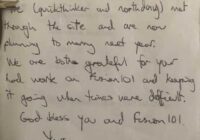 We (quickthinker and northdevon) met
through the site and are now
planning to marry next year.
We are both grateful for your
hard work on Fusion101 and keeping
it going when times were difficult.
God bless you and Fusion101.